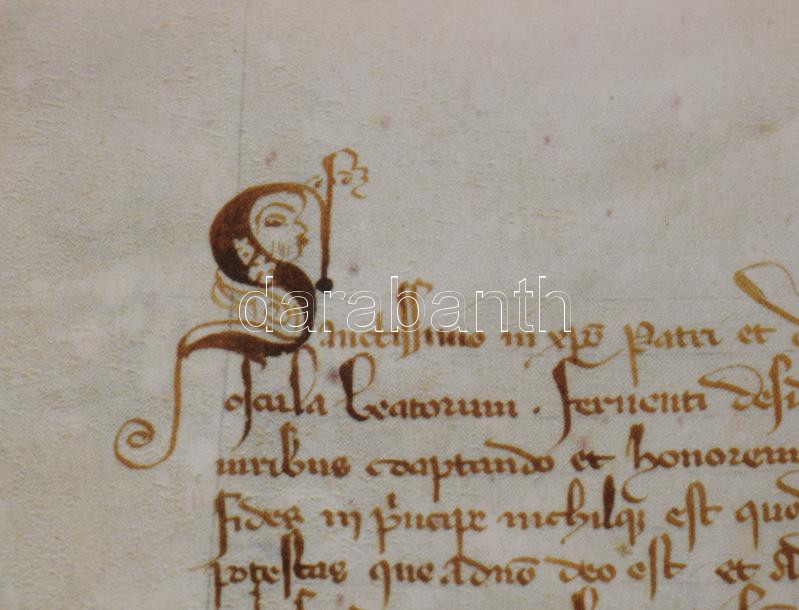 Sanctissimo in xp̄o Patri et
darabanth
oscula beatorum . ferventi desid
viribus coaptando et honorem
fides in p̍ncipe nichilqꝫ est quo
potestas que adnō deo est et